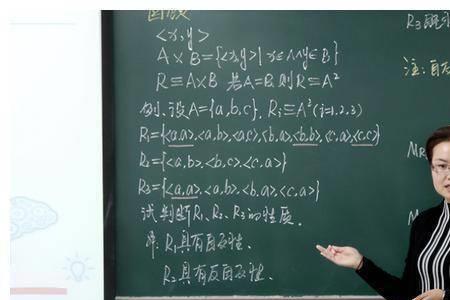 <x,y>
A×B={<x,y>|x∈A∧y∈B}
R≡A×B 若A=B,则R≡A²
例、设A={a,b,c}, Rᵢ≡A²(i=1,2,3)
R₁={<a,a>,<a,b>,<a,c>,<b,a>,<b,b>,<c,a>,<c,c>}
R₂={<a,b>,<b,c>,<c,a>}
R₃={<a,a>,<a,b>,<b,a>,<c,a>}
试判断R₁、R₂、R₃的性质。
解:R₁具有自反性、
R₂具有反自反性、
R₃既不
注:自反
MR
M